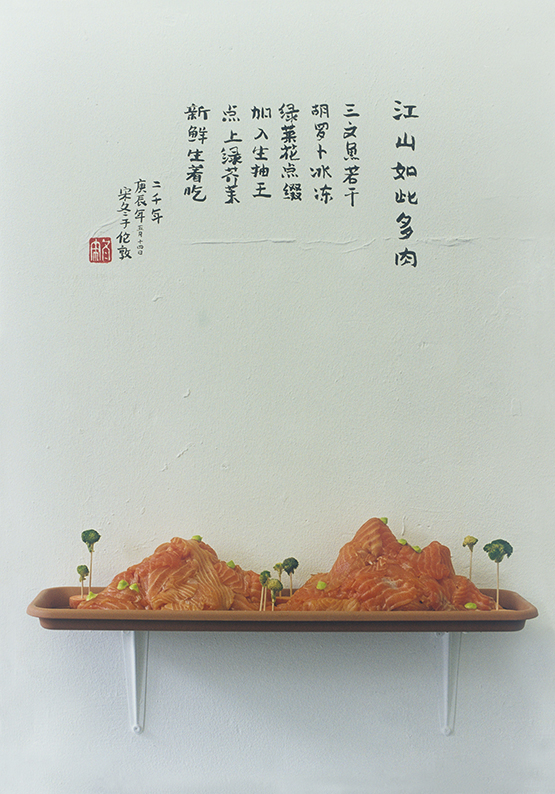 江山如此多肉
三文魚若干
胡罗卜冰冻
绿菜花点缀
加入生抽王
点上绿芥末
新鮮生着吃
二千年
庚辰年三月十四日
宋冬于伦敦